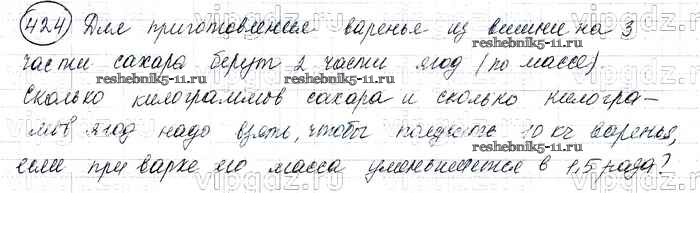 424) Для приготовления варенья из вишни на 3
части сахара берут 2 части ягод (по массе).
reshebnik5-11.ru reshebnik5-11.ru
Сколько килограммов сахара и сколько килогра-
мов ягод надо взять, чтобы получить 10 кг варенья,
reshebnik5-11.ru reshebnik5-11.ru
если при варке его масса уменьшается в 1,5 раза?
vipgdz.ru vipgdz.ru